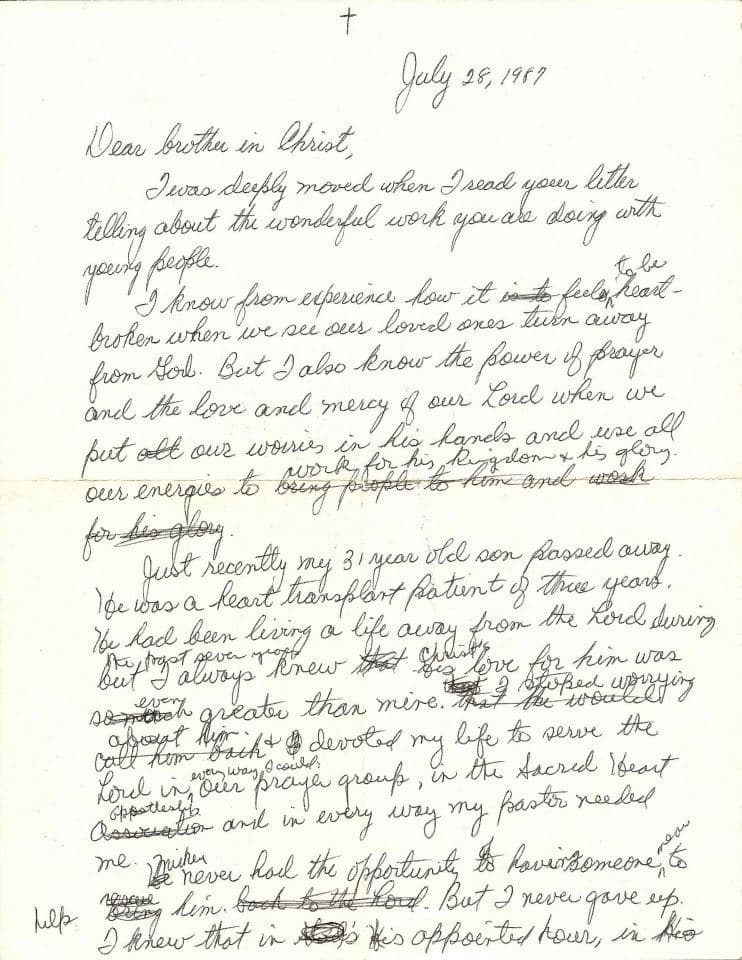 July 28, 1987
Dear brother in Christ,
I was deeply moved when I read your letter
telling about the wonderful work you are doing with
young people.
to be
I know from experience how it is to feels heart-
broken when we see our loved ones turn away
from God. But I also know the power of prayer
and the love and mercy of our Lord when we
put all our worries in his hands and use all
work for his kingdom & his glory.
our energies to bring people to him and work
for his glory.
Just recently my 31 year old son passed away.
He was a heart transplant patient of three years.
He had been living a life away from the Lord during
the past seven years
but I always knew that Christ's love for him was
I stoped worrying
every
so much greater than mine. that he would
about him.
call him back & I devoted my life to serve the
every way I could:
Lord in our prayer group, in the Sacred Heart
Apostleship
Association and in every way my pastor needed
me. He never had the opportunity to have someone near to
rescue
help bring him back to the Lord. But I never gave up.
I knew that in His appointed hour, in His